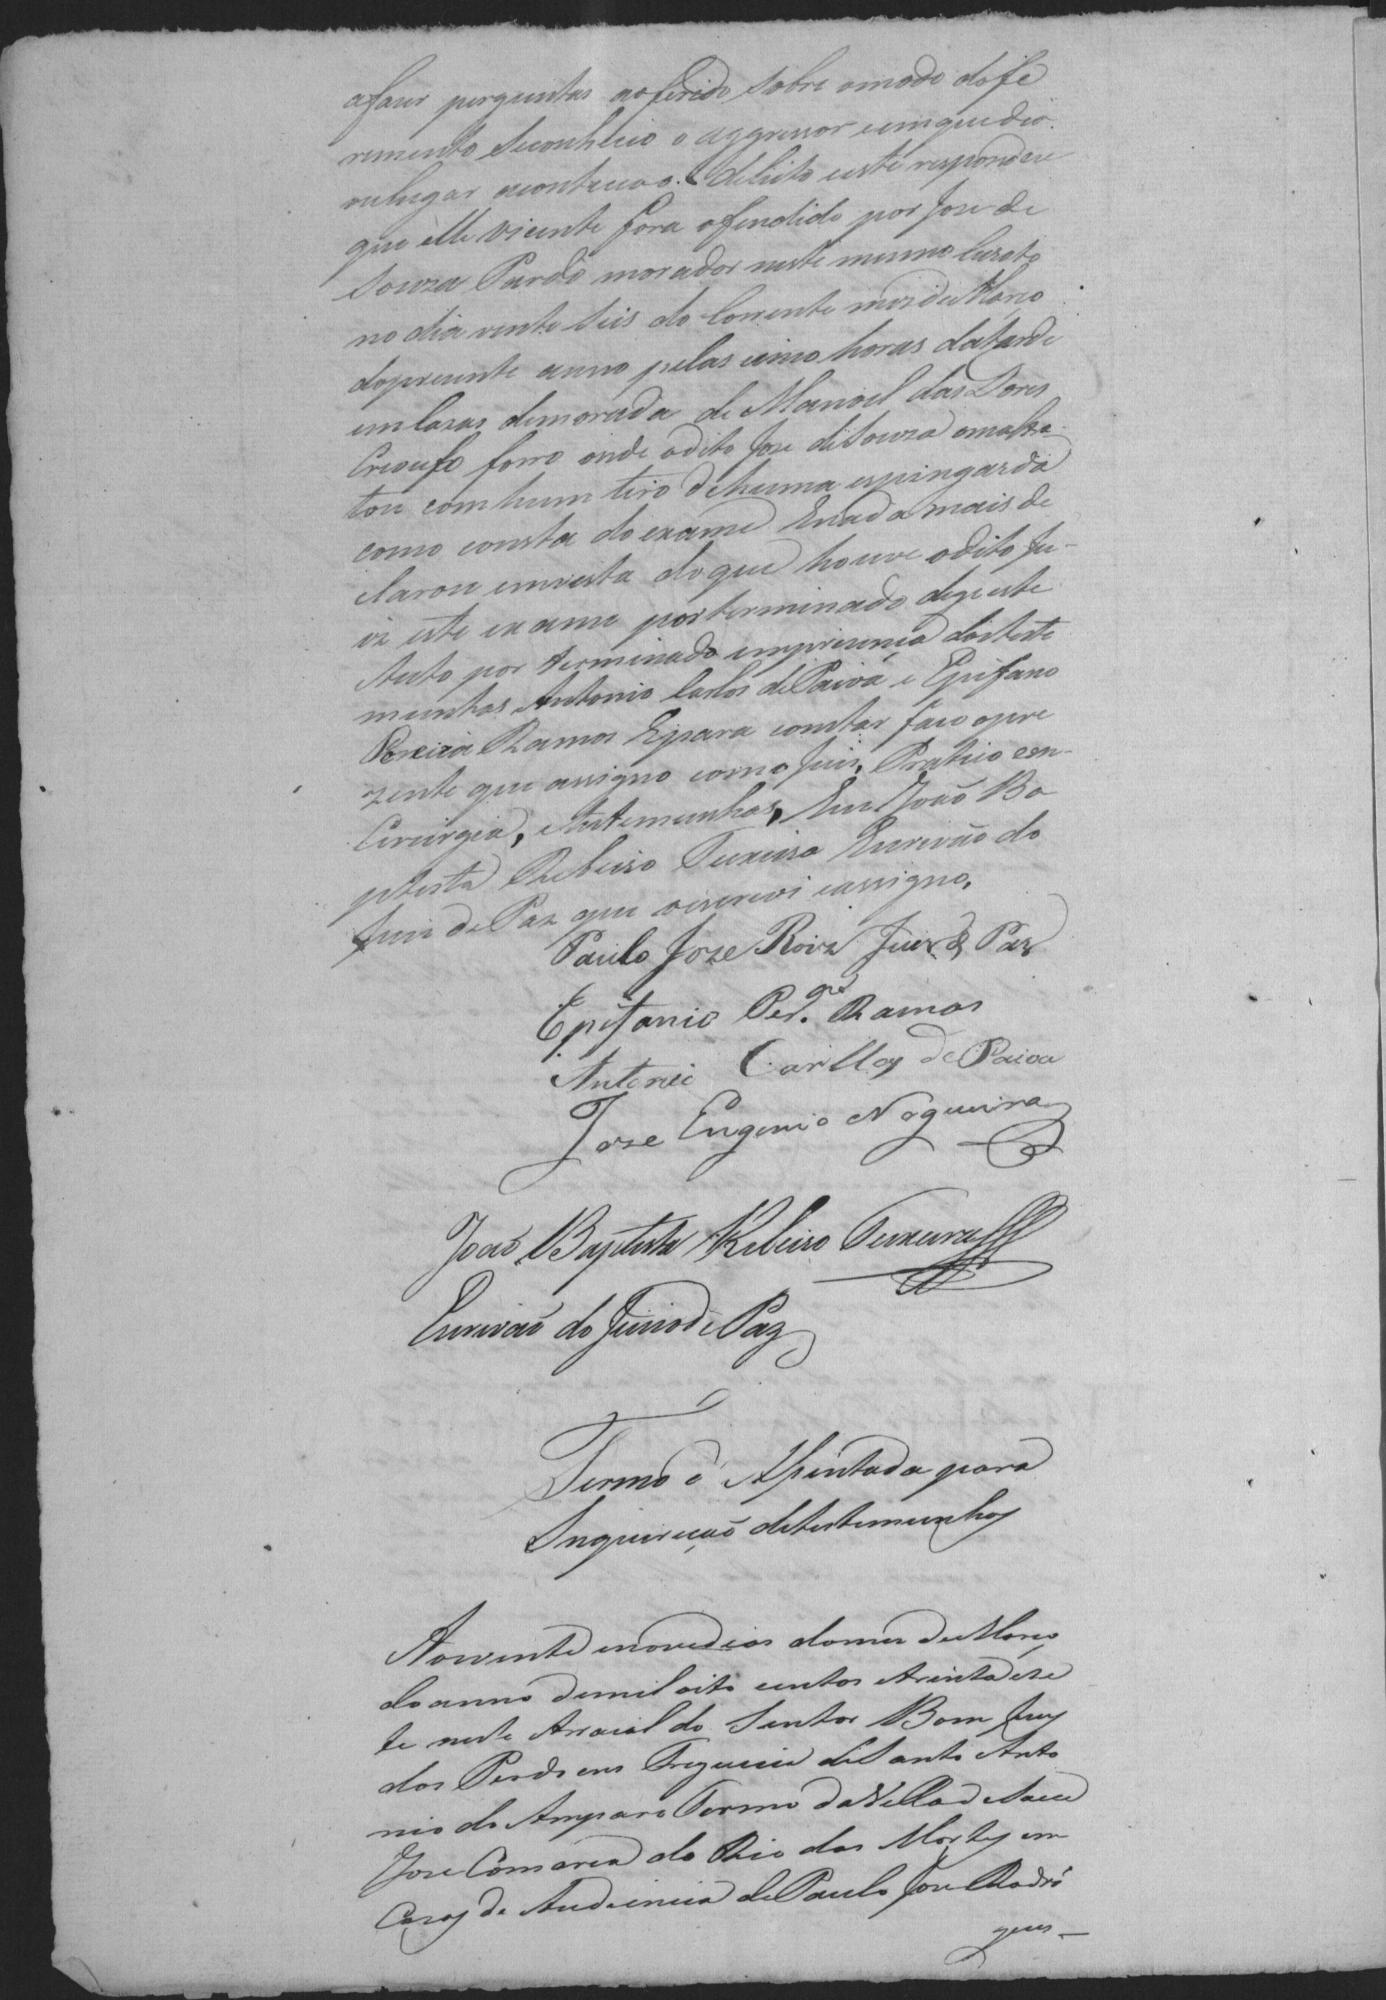 afaser perguntas aoferido sobre omodo dofe
rimento seconheceo o aggressor eemquedia
oulugar aconteceo o delicto eeste respondeu
que elle vicente fora ofendido por Jose de
Souza Pardo morador neste mesmo Curato
no dia vente seis do Corrente mes de Março
dopresente anno pelas cinco horas datarde
em Casas demorada de Manoel das Dores
Crioulo forro onde odito Jose de Souza omaltra
tou com hum tiro de huma espingarda
como consta do exame Enada mais de
clarou emvista doque houve odito Ju-
iz este exame por terminado deque este
Auto por terminado empresença dasteste
munhas Antonio Carlos de Paiva e Epifano
Pereira Ramos Epara constar faço opre
zente que assigno como Juis, Pratico em
Cirurgia, etestemunhas, Eu João Ba
ptista Ribeiro Teixeira Escrivão do
Juis de Paz que oescrevi eassigno.
Paulo Joze Roiz Juiz de Paz
Epifanio Per.ª Ramos
Antonio Carllos de Paiva
Joze Eugenio Nogueira
João Baptista Ribeiro Teixeira
Escrivão do Juiso de Paz
Termo d' Asentada para
Inquirição detestemunhas
Aovinte enovedias domes de Março
do anno demil oito centos etrinta ese
te neste Arraial do Senhor Bom Jesus
dos Perdoens Freguesia de Santo Anto
nio do Amparo Termo da Villa de Sam
Jose Comarca do Rio das Mortes em
Casas de Audiencia de Paulo Jose Rodri
gues